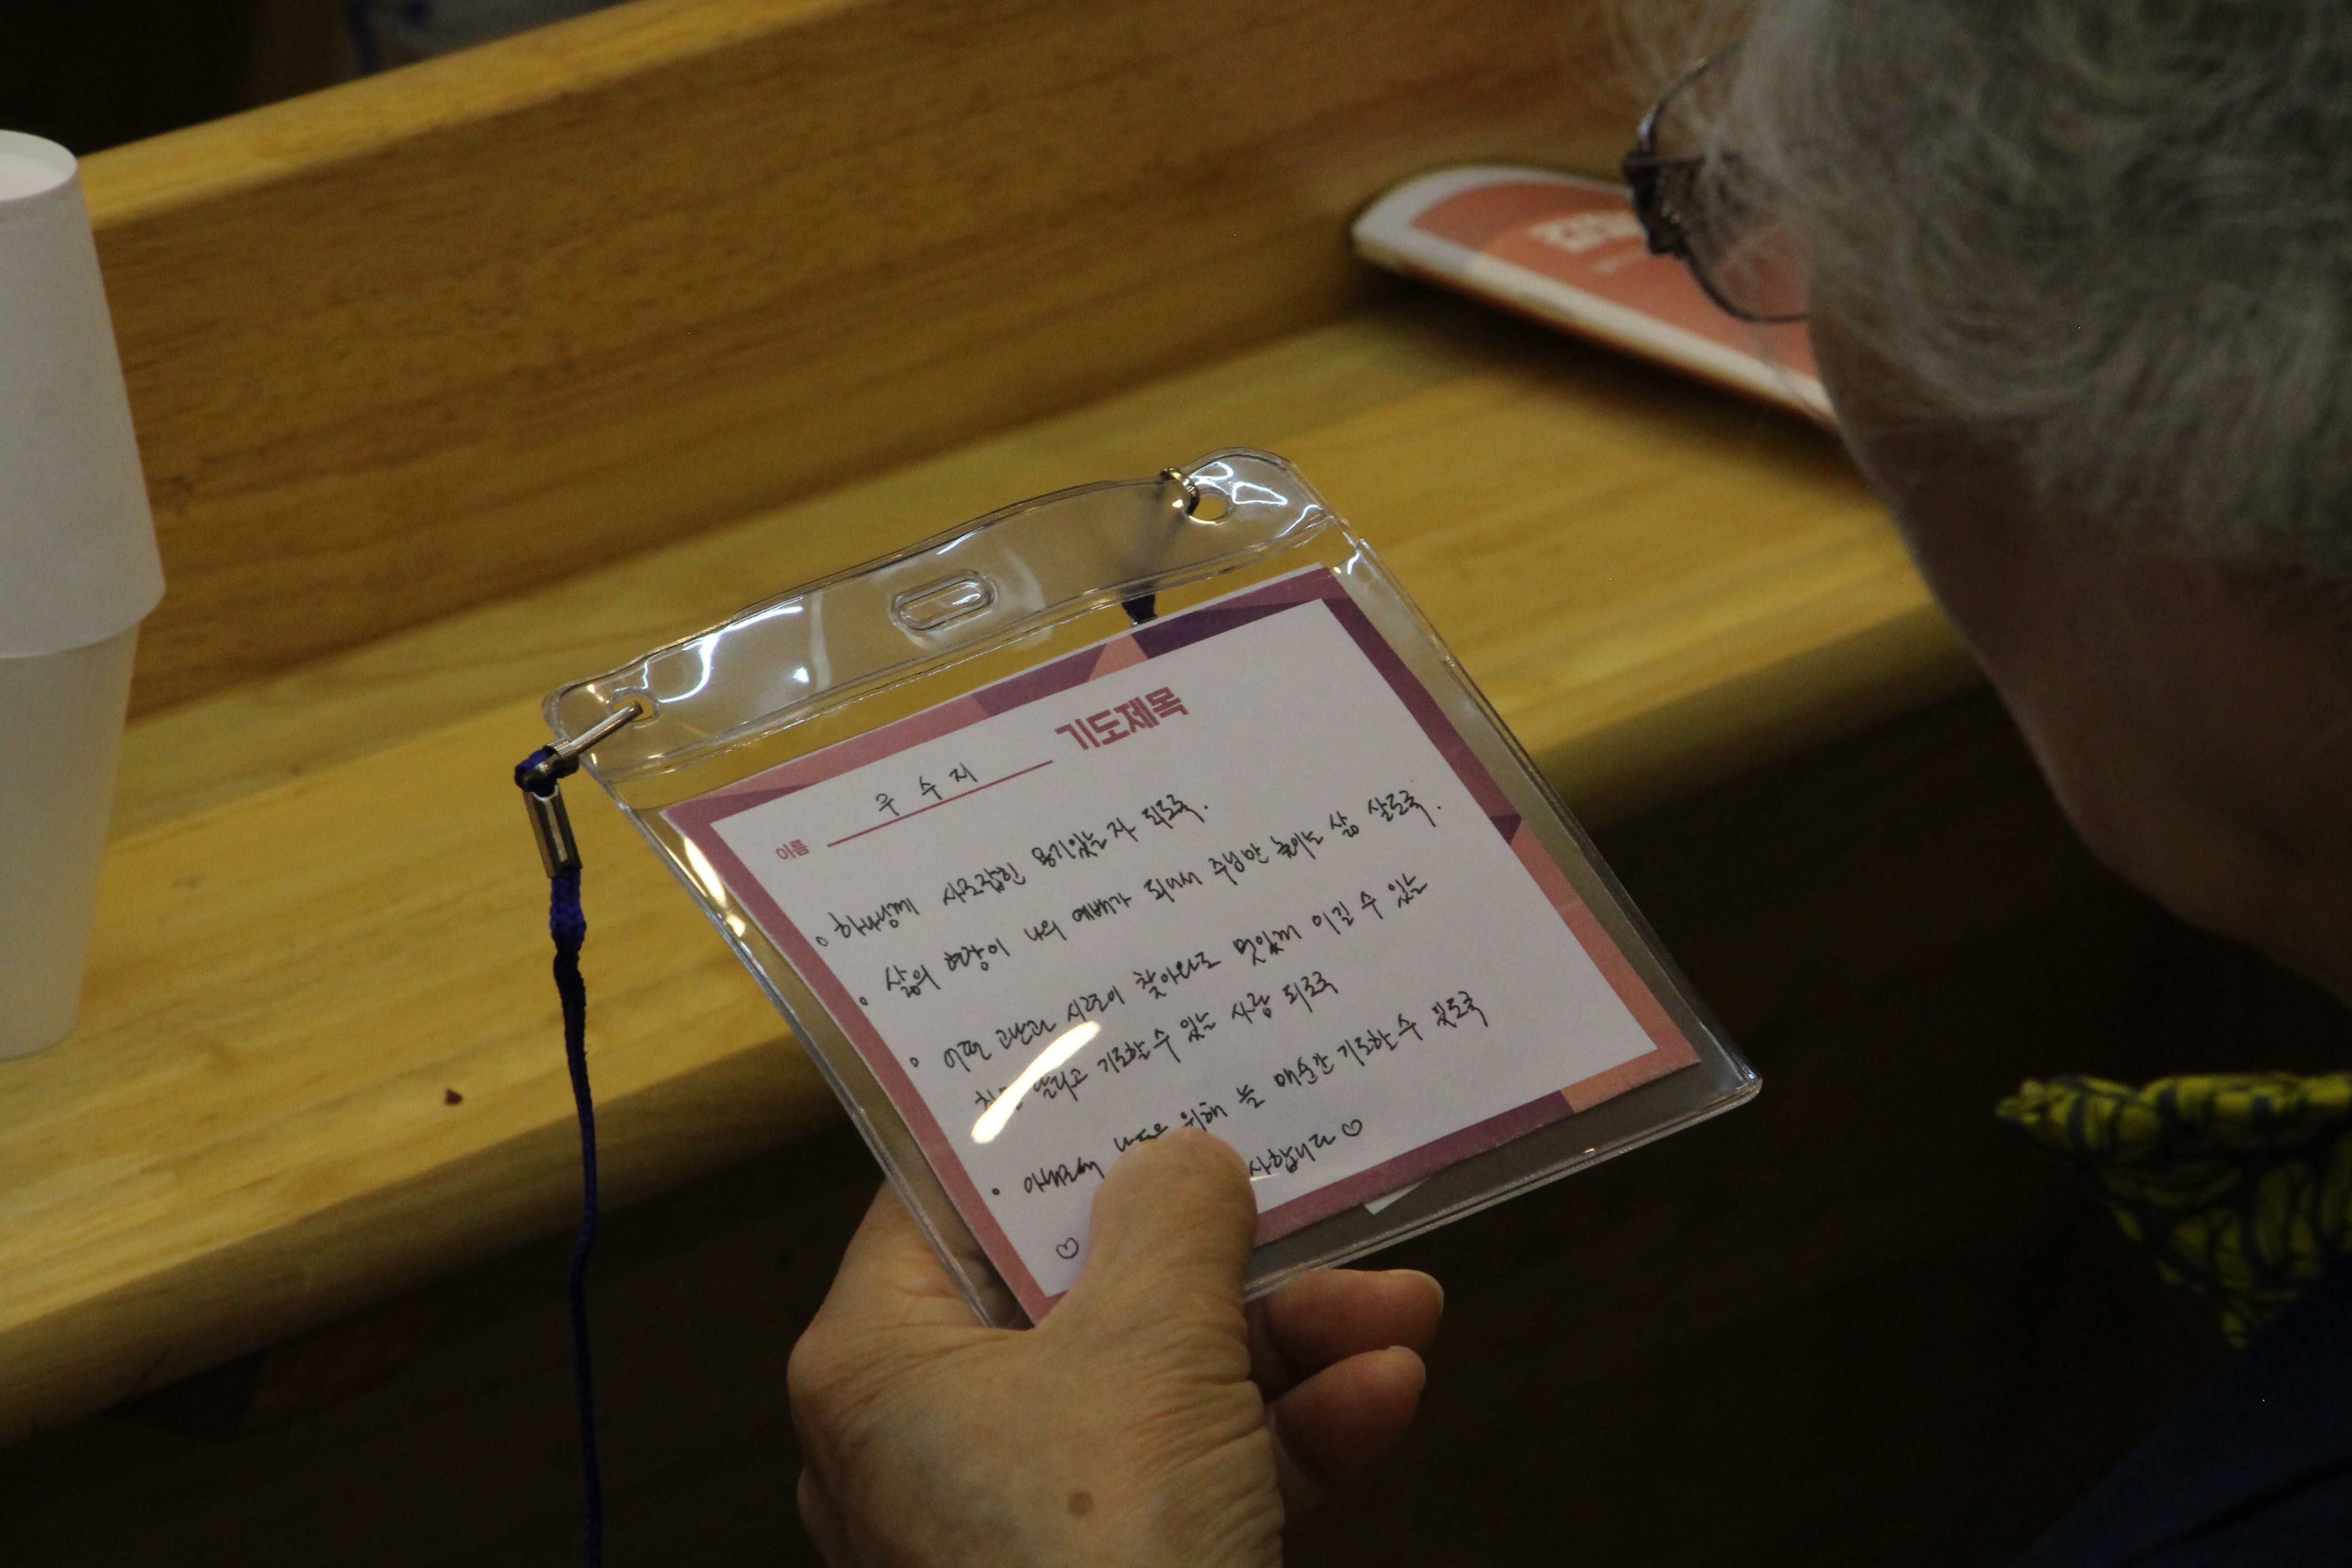 기도제목
이름 우수지
하나님께 사로잡힌 용기있는 자 되도록.
삶의 현장이 나의 예배가 되어서 주님만 높이는 삶 살도록.
어떤 고난과 시련이 찾아와도 멋있게 이길 수 있는
기도할 수 있는 사람 되도록
위해 늘 매순간 기도할 수 있도록
사합니다 ♡
♡